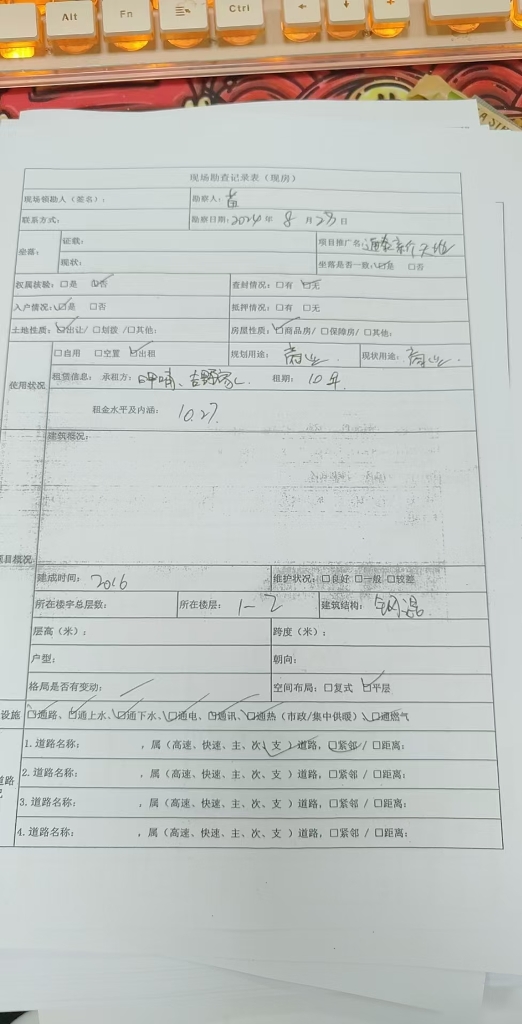 Alt Fn Ctrl
现场勘查记录表（现房）
现场领勘人（签名）： 勘察人：
联系方式： 勘察日期：2024年 8 月 23 日
坐落： 证载： 项目推广名：
现状： 坐落是否一致：☑是 □否
权属核验：□是 ☑否 查封情况：□有 ☑无
入户情况：☑是 □否 抵押情况：□有 □无
土地性质：☑出让/ □划拨 /□其他： 房屋性质：☑商品房/ □保障房/ □其他：
使用状况 □自用 □空置 ☑出租 规划用途：商业 现状用途：商业
租赁信息： 承租方：呷哺、吉野家 租期：10年
租金水平及内涵：10.27
建筑概况：
项目概况
建成时间：2016 维护状况：□良好 □一般 □较差
所在楼宇总层数： 所在楼层：1-2 建筑结构：钢混
层高（米）： 跨度（米）：
户型： 朝向：
格局是否有变动： 空间布局：□复式 ☑平层
设施 ☑通路、☑通上水、☑通下水、☑通电、☑通讯、☑通热（市政/集中供暖）、☑通燃气
1.道路名称： ，属（高速、快速、主、次、支 ）道路，☑紧邻 / □距离：
2.道路名称： ，属（高速、快速、主、次、支 ）道路，□紧邻 / □距离：
3.道路名称： ，属（高速、快速、主、次、支 ）道路，□紧邻 / □距离：
4.道路名称： ，属（高速、快速、主、次、支 ）道路，□紧邻 / □距离：